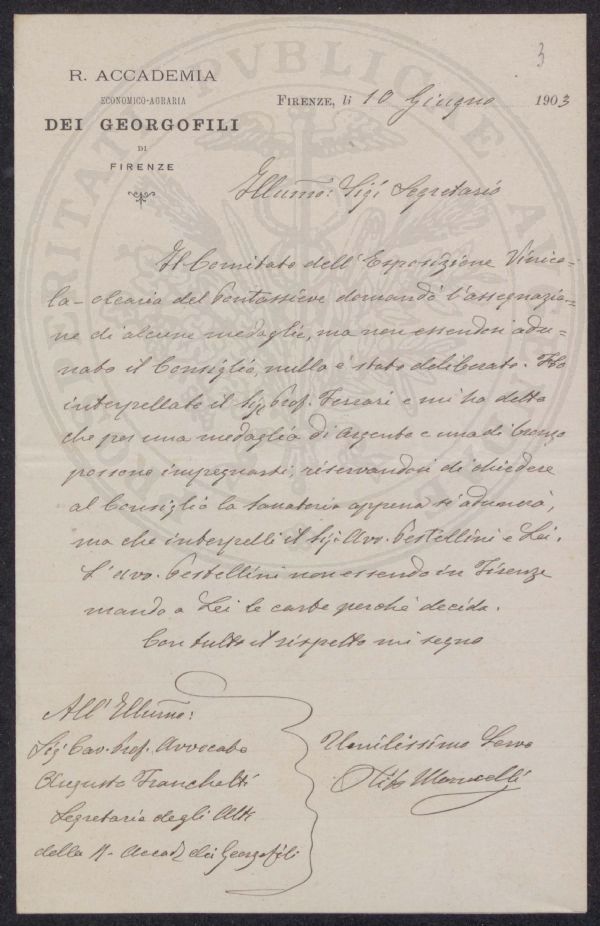 3
R. ACCADEMIA
ECONOMICO-AGRARIA
DEI GEORGOFILI
DI
FIRENZE
FIRENZE, li 10 Giugno 1903
Illumo: Sigr Segretario
Il Comitato dell'Esposizione Vinico=
la-olearia del Pontassieve domandò l'assegnazio=
ne di alcune medaglie, ma non essendosi adu=
nato il Consiglio, nulla è stato deliberato. Ho
interpellato il Sigr Prof. Ferrari e mi ha detto
che per una medaglia di argento e una di bronzo
possono impegnarsi, riservandosi di chiedere
al Consiglio la sanatoria appena si adunerà,
ma che interpelli il Sigr Avv. Pestellini e Lei.
L'avv. Pestellini non essendo in Firenze
mando a Lei le carte perchè decida.
Con tutto il rispetto mi segno
Umilissimo Servo
All'Illumo:
Sigr Cav. Prof. Avvocato
Augusto Franchetti
Segretario degli Atti
della R. Accad. dei Georgofili